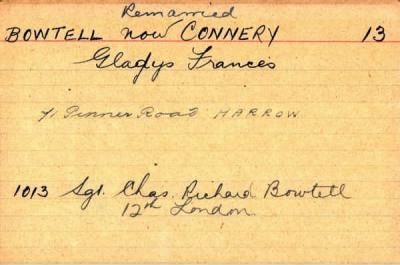 Remarried
BOWTELL now CONNERY 13
Gladys Frances
71 Pinner Road HARROW
1013 Sgt. Chas. Richard Bowtell
12th London